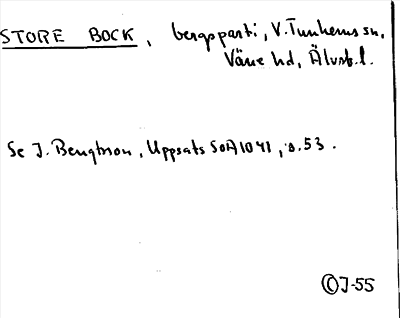 STORE BOCK, bergsparti, V. Tunhems sn,
Väne hd, Älvsb. l.
Se J. Bengtson, Uppsats SOA 1041, s. 53.
© J-55